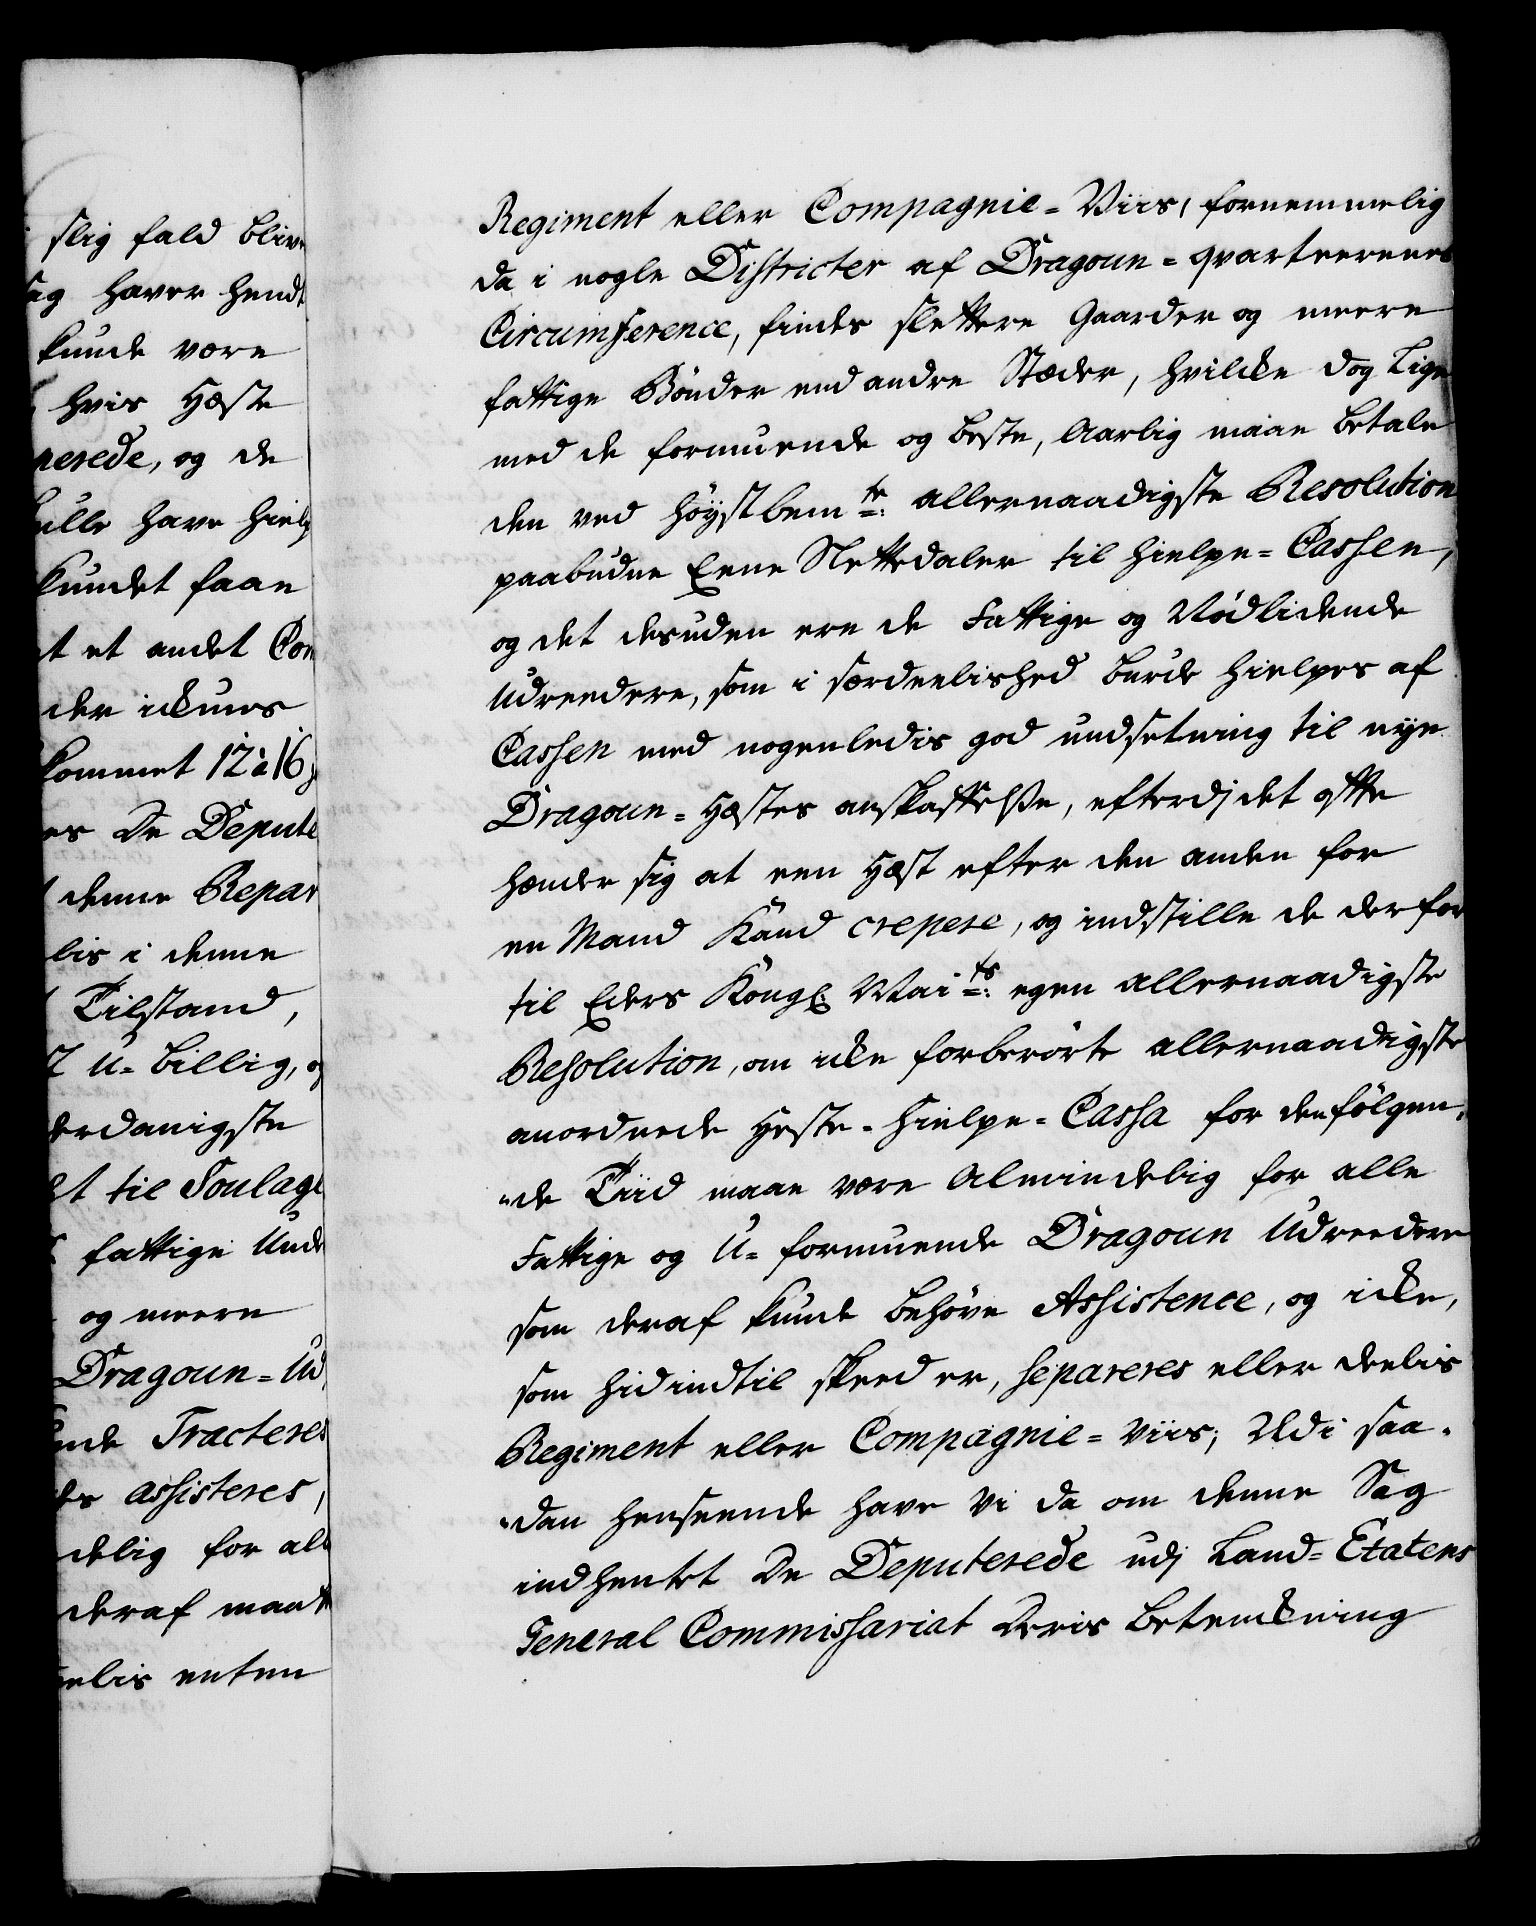 slig fald blive
sag haver hendt
kunde være
hvis Hæste
nerede, og de
skulle have hielp
kundet faae
et andet Com
der ickuns
kommet 12 à 16
De Depute
denne Repar
lis i denne
Tilstand,
U-billig, og
derdanigste
til Soulage
fattige Unde
og meere
Dragoun=Ud
ende Tracteres
assisteres,
delig for all
deraf maatte
deelis enten
Regiment eller Compagnie=Viis, fornemmelig
da i nogle Districter af Dragoun=qvarteerernes
Circumference, findes slettere Gaarder og meere
fattige Bönder end andre Stæder, hvilcke dog Lige
med de formuende og beste, Aarlig maae betale
den ved höystbemte: allernaadigste Resolution
paabudne Eene Slettedaler til hielpe=Cassen,
og det desuden ere de Fattige og Nödlidende
Udreedere, som i særdeelished burde hielpes af
Cassen med nogenledis god undsetning til nye
Dragoun=Hæstes anskaffelße, efterdj det offte
hænder sig at een Hæst efter den anden for
en Mand kand crepere, og indstille de derfor
til Eders Kongl: Maits: egen allernaadigste
Resolution, om icke forberörte allernaadigste
anordnede Heste-hielpe=Cassa for den fölgen-
-de Tiid maae være Almindelig for alle
Fattige og U=formuende Dragoun Udreedere
som deraf kunde behöve Assistence, og icke,
som hidindtil skeed er, separeres eller deelis
Regiment eller Compagnie=viis; Udi saa-
-dan henseende have Vi da om denne Sag
indhentet De Deputerede udj Land=Etatens
General Commissariat Deris betenckning